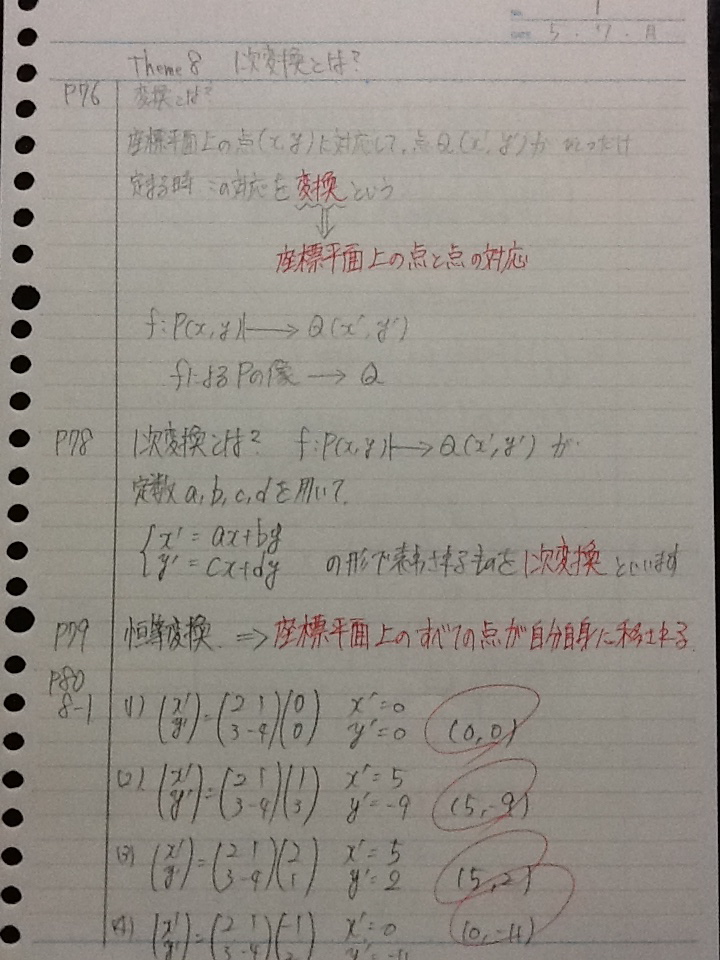 No. 1
DATE 5・7・月
Theme 8 1次変換とは?
P76 変換とは?
座標平面上の点(x,y)に対応して、点Q(x',y')が ただ1つだけ
定まる時 この対応を変換という
⇓
座標平面上の点と点の対応
f:P(x,y)↦Q(x',y')
fによるPの像→Q
P78 1次変換とは? f:P(x,y)↦Q(x',y')が
定数a,b,c,dを用いて、
{x'=ax+by
{y'=cx+dy の形で表わされるものを1次変換といいます
P79 恒等変換 ⇒ 座標平面上のすべての点が自分自身に移される
P80
8-1 (1) (x' y')=(2 1 3 -4)(0 0) x'=0 y'=0 (0,0)
(2) (x' y')=(2 1 3 -4)(1 3) x'=5 y'=-9 (5,-9)
(3) (x' y')=(2 1 3 -4)(2 1) x'=5 y'=2 (5,2)
(4) (x' y')=(2 1 3 -4)(-1 2) x'=0 y'=-11 (0,-11)